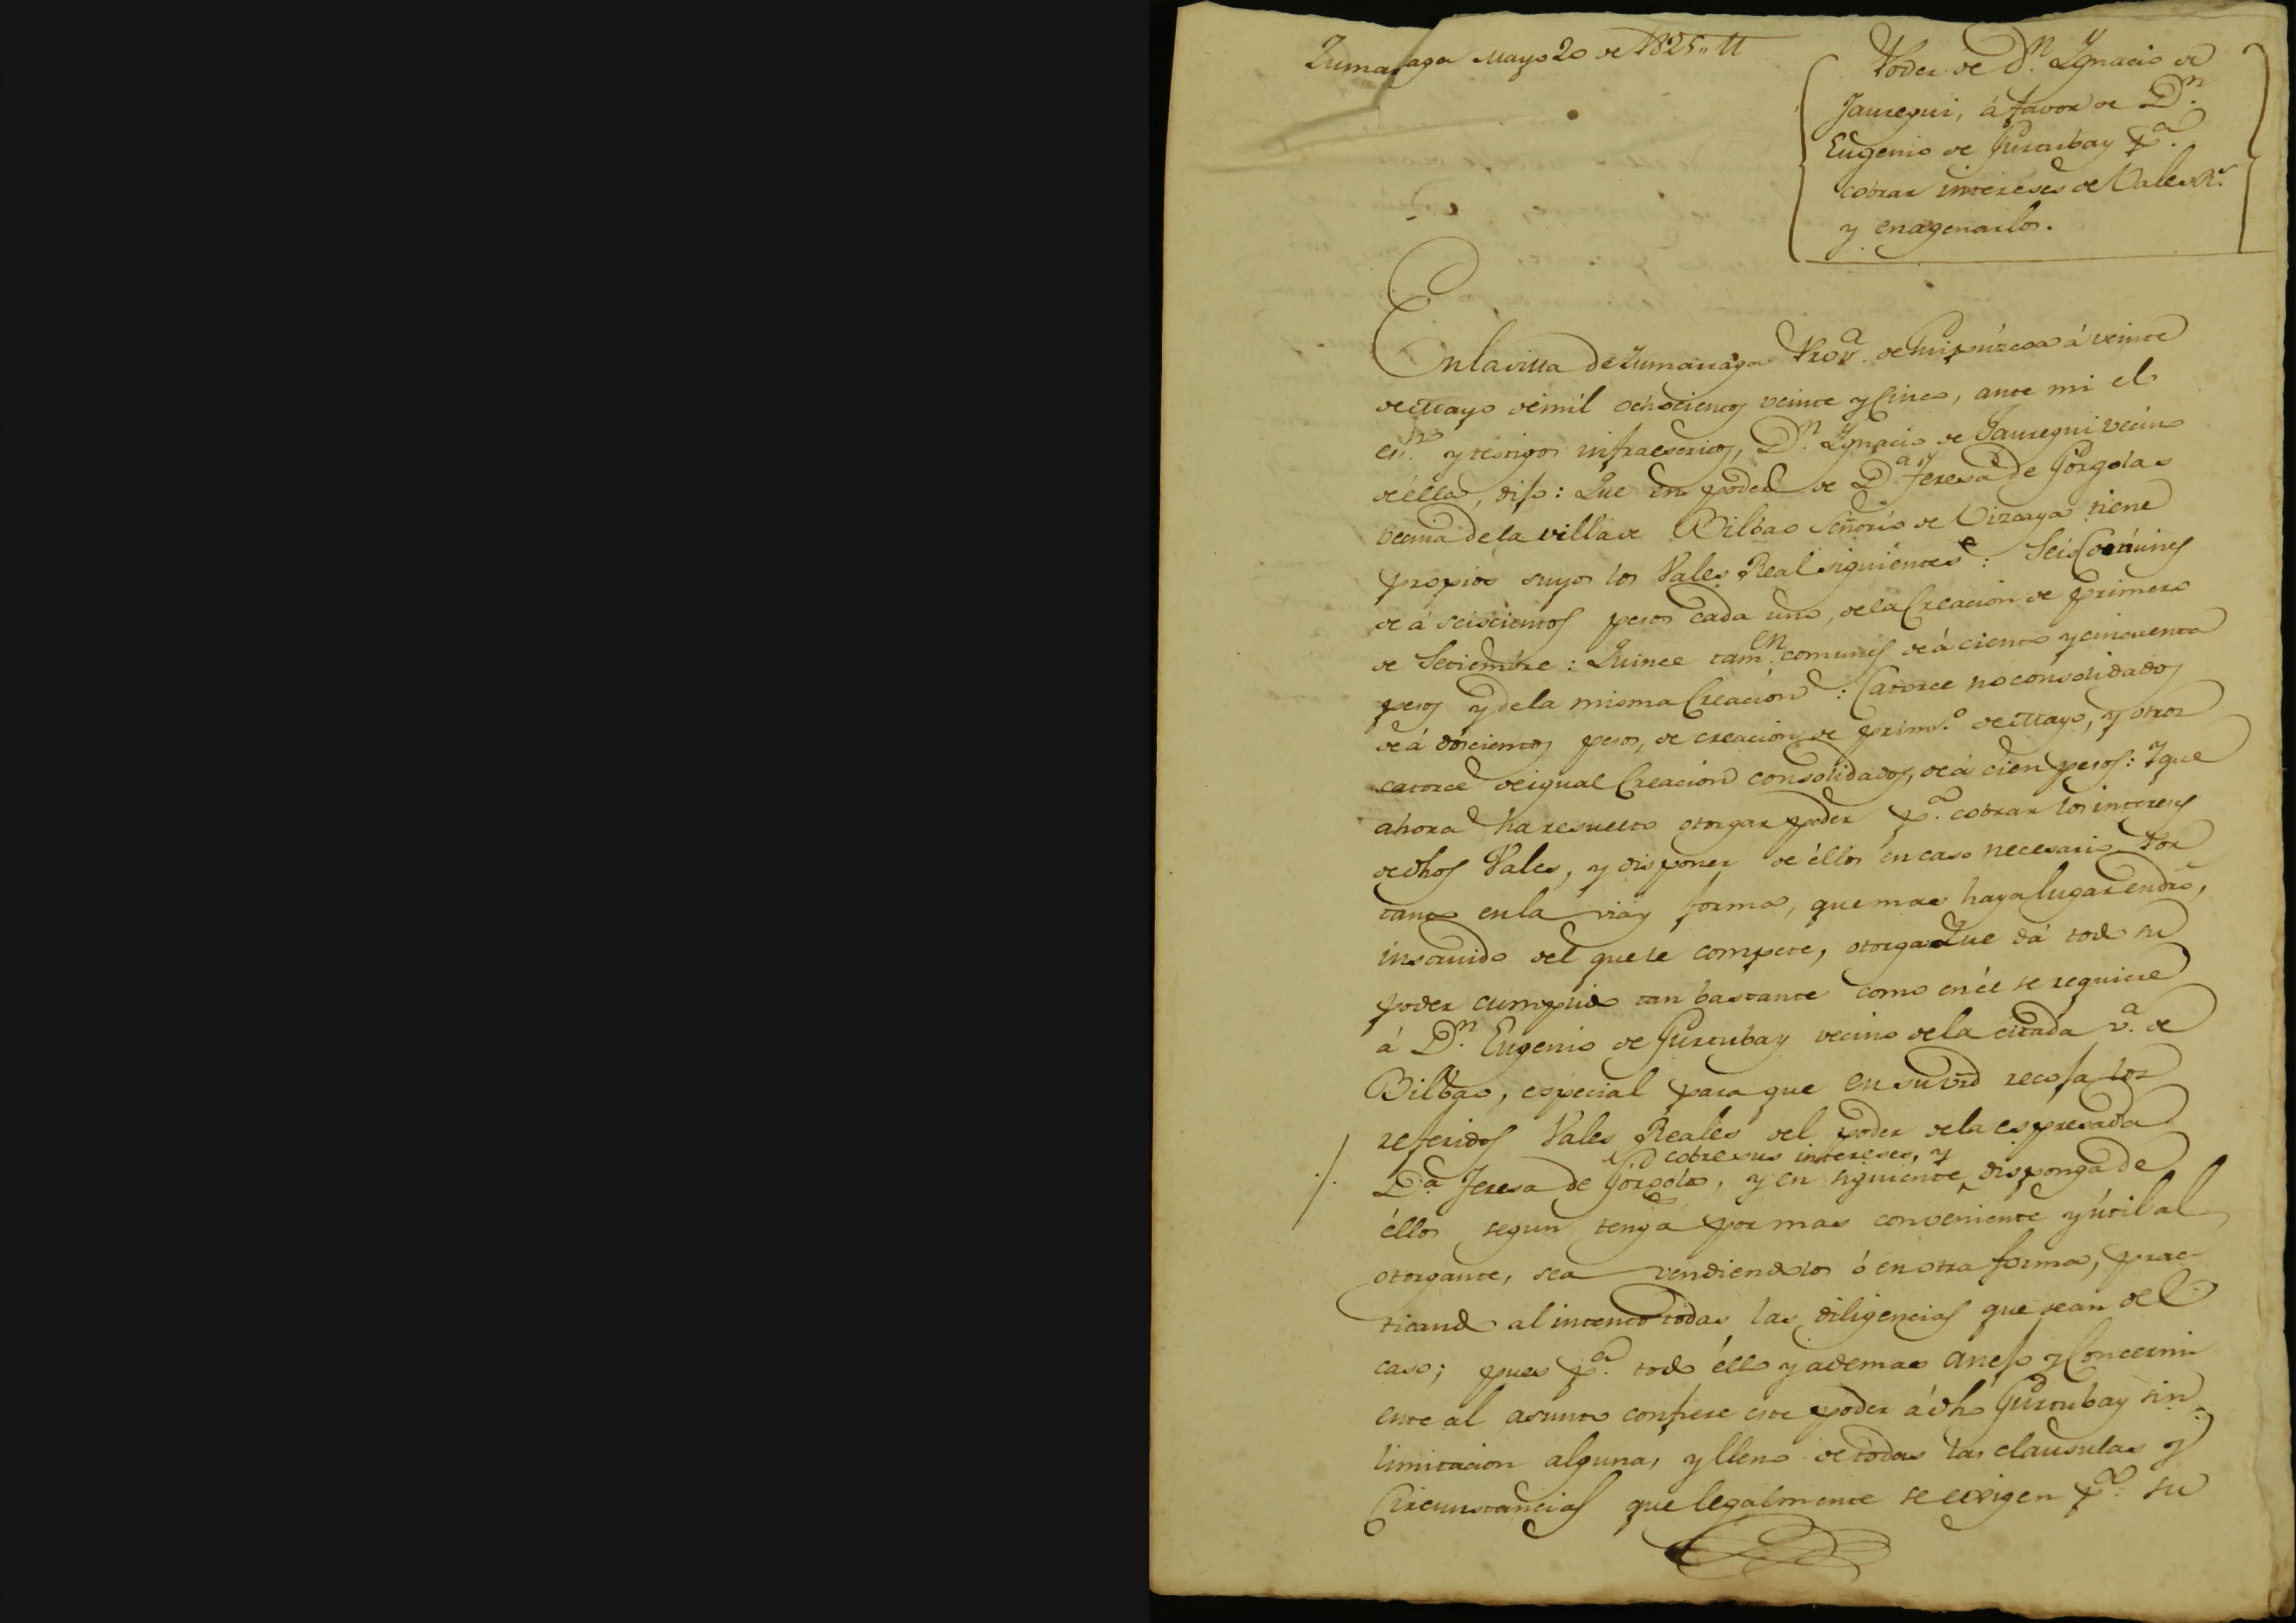 Zumarraga Mayo 20 de 1825
Poder de Dn. Ygnacio de
Jauregui, á favor de Dn.
Eugenio de Gurtubay pa.
cobrar intereses de Vales Rs.
y enagenarlos.
En la villa de Zumarraga Prova. de Guipúzcoa á veinte
de Mayo de mil ochocientos veinte y Cinco, ante mi el
esno. y testigos infraescritos, Dn. Ygnacio de Jauregui vecino
de élla, dijo: Que en poder de Da. Teresa de Górgolas
vecina de la villa de Bilbao Señorío de Vizcaya tiene
propios suyos los Vales Real siguientes: Seis Comunes
de á seiscientos pesos cada uno, de la Creacion de primero
de Setiembre: Quince tamen. comunes de á ciento y cincuenta
pesos y de la misma Creación: Catorce no consolidados
de á doscientos pesos, de creacion de primo. de Mayo, y otros
catorce de igual Creacion consolidados, de á cien pesos: Y que
ahora ha resuelto otorgar poder pa. cobrar los intereses
de dhos Vales, y disponer de éllos en caso necesario. Por
tanto en la via y forma, que mas haya lugar en dro,
instruido del que le compete, otorga: Que dá todo su
poder cumplido tan bastante como en él se requiere
á Dn. Eugenio de Gurtubay vecino de la citada va. de
Bilbao, especial para que en su vrd recoja los
referidos Vales Reales del poder de la espresada
cobre sus intereses, y
Da. Teresa de Górgolas, y en siguiente disponga de
éllos segun tenga por mas conveniente y útil al
otorgante, sea vendiendolos ó en otra forma, prac-
ticando al intento todas las diligencias que sean del
caso; pues pa. todo éllo y ademas anejo y Concerni-
ente al asunto confiere este poder á dho Gurtubay sin
limitacion alguna, y lleno de todas las clausulas y
Circunstancias que legalmente se exigen pa. su